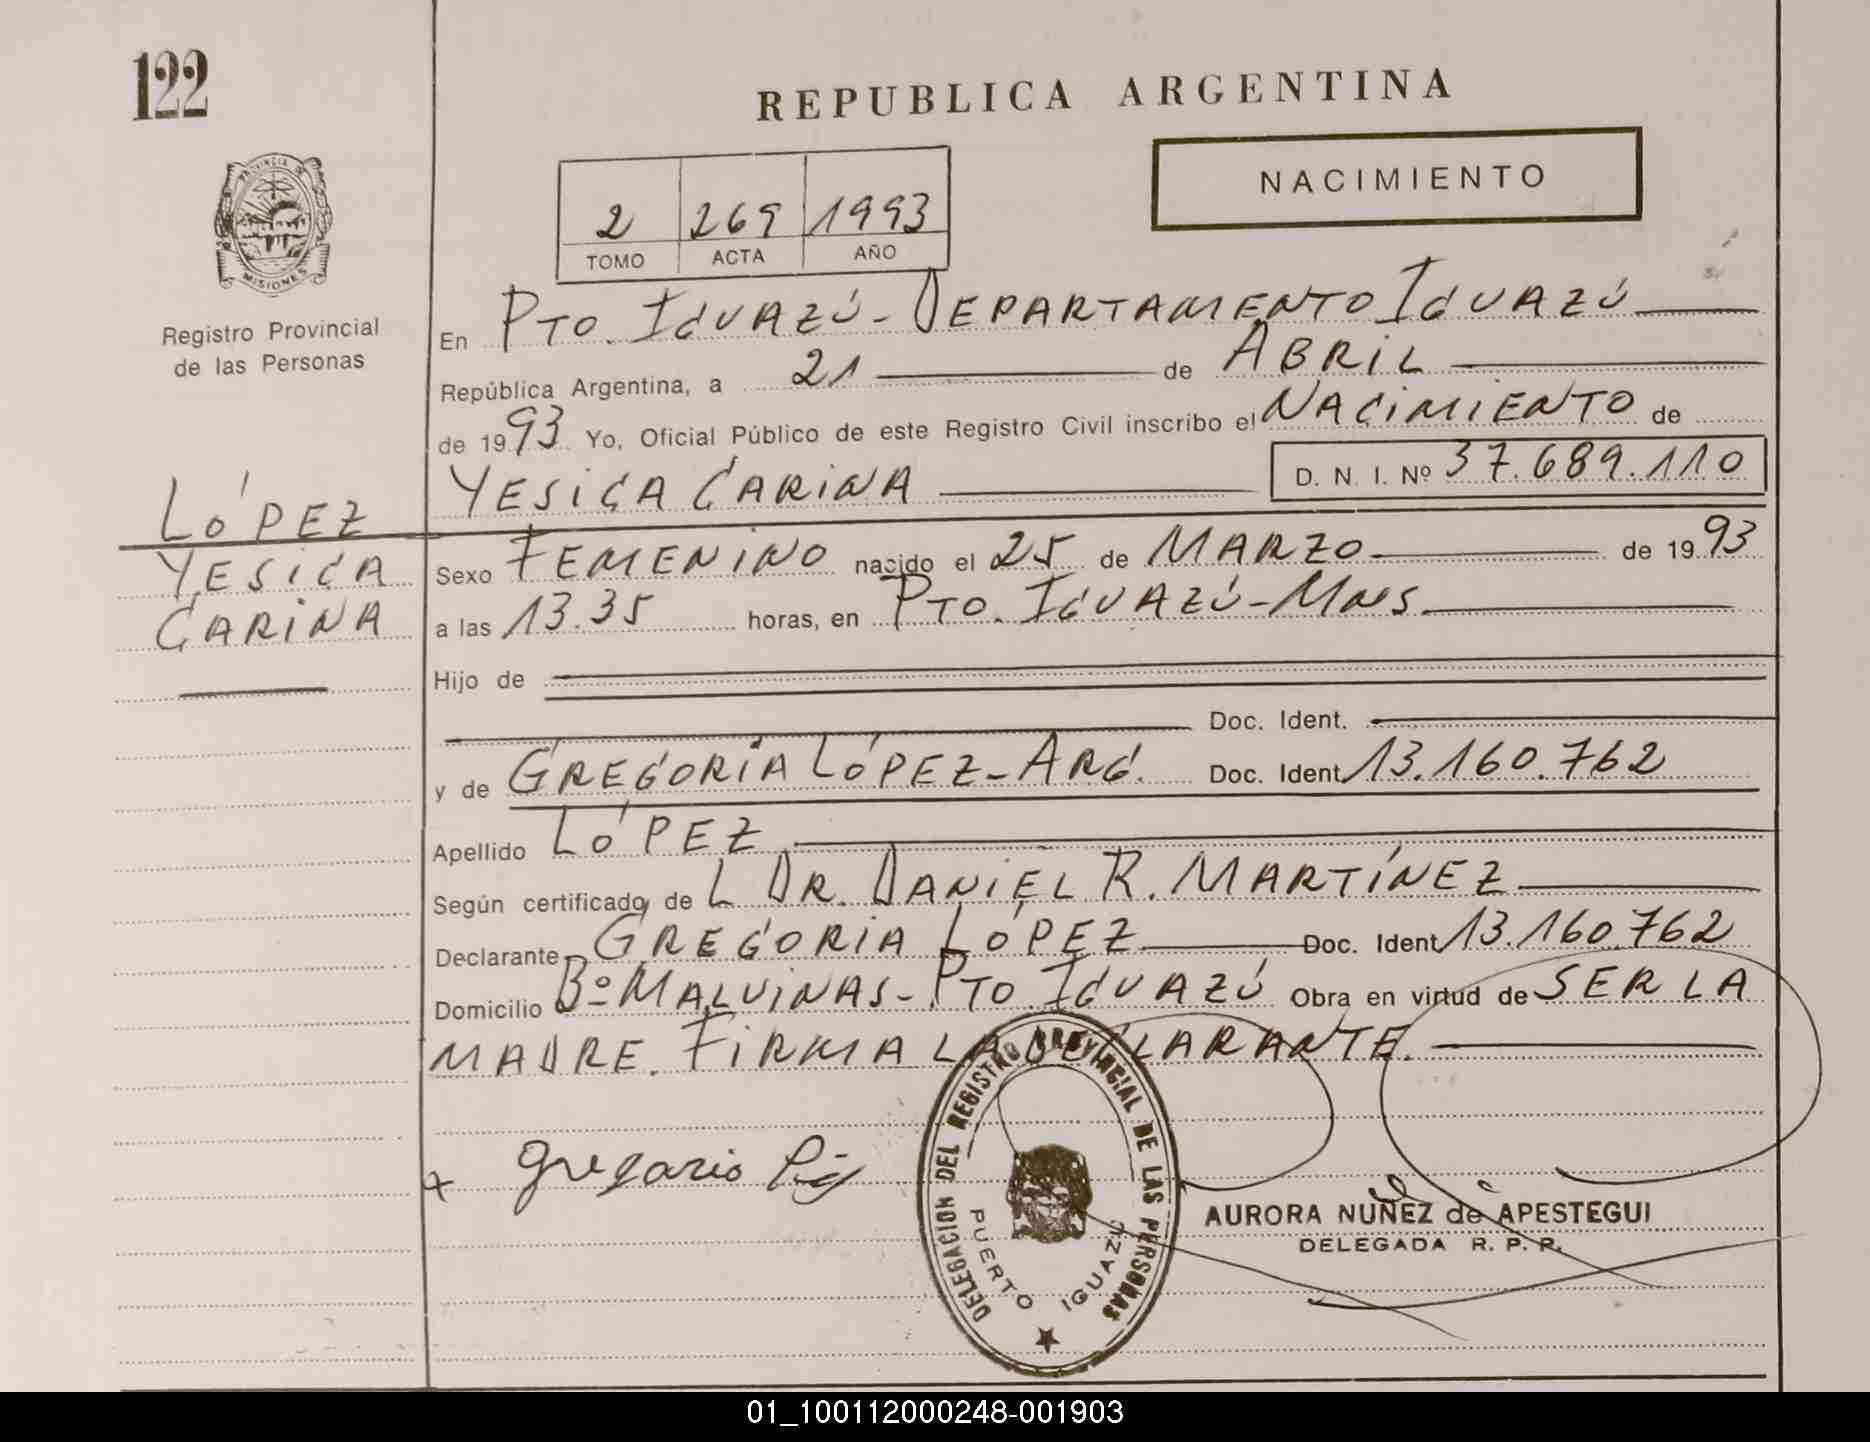 122
REPUBLICA ARGENTINA
NACIMIENTO
2 269 1993
TOMO ACTA AÑO
PROVINCIA DE MISIONES
Registro Provincial
de las Personas
En Pto. Iguazú - Departamento Iguazú
República Argentina, a 21 de Abril
de 1993 Yo, Oficial Público de este Registro Civil inscribo el Nacimiento de
Yesica Carina D. N. I. Nº 37.689.110
López
Yesica
Carina
Sexo Femenino nacido el 25 de Marzo de 1993
a las 13.35 horas, en Pto. Iguazú - Mnes.
Hijo de
Doc. Ident.
y de Gregoria López - Arg. Doc. Ident 13.160.762
Apellido López
Según certificado de L Dr. Daniel R. Martínez
Declarante Gregoria López Doc. Ident 13.160.762
Domicilio Bº Malvinas - Pto Iguazú Obra en virtud de ser la
madre. Firma la declarante.
DELEGACION DEL REGISTRO PROVINCIAL DE LAS PERSONAS
PUERTO IGUAZU
AURORA NUÑEZ de APESTEGUI
DELEGADA R. P. P.
01_100112000248-001903